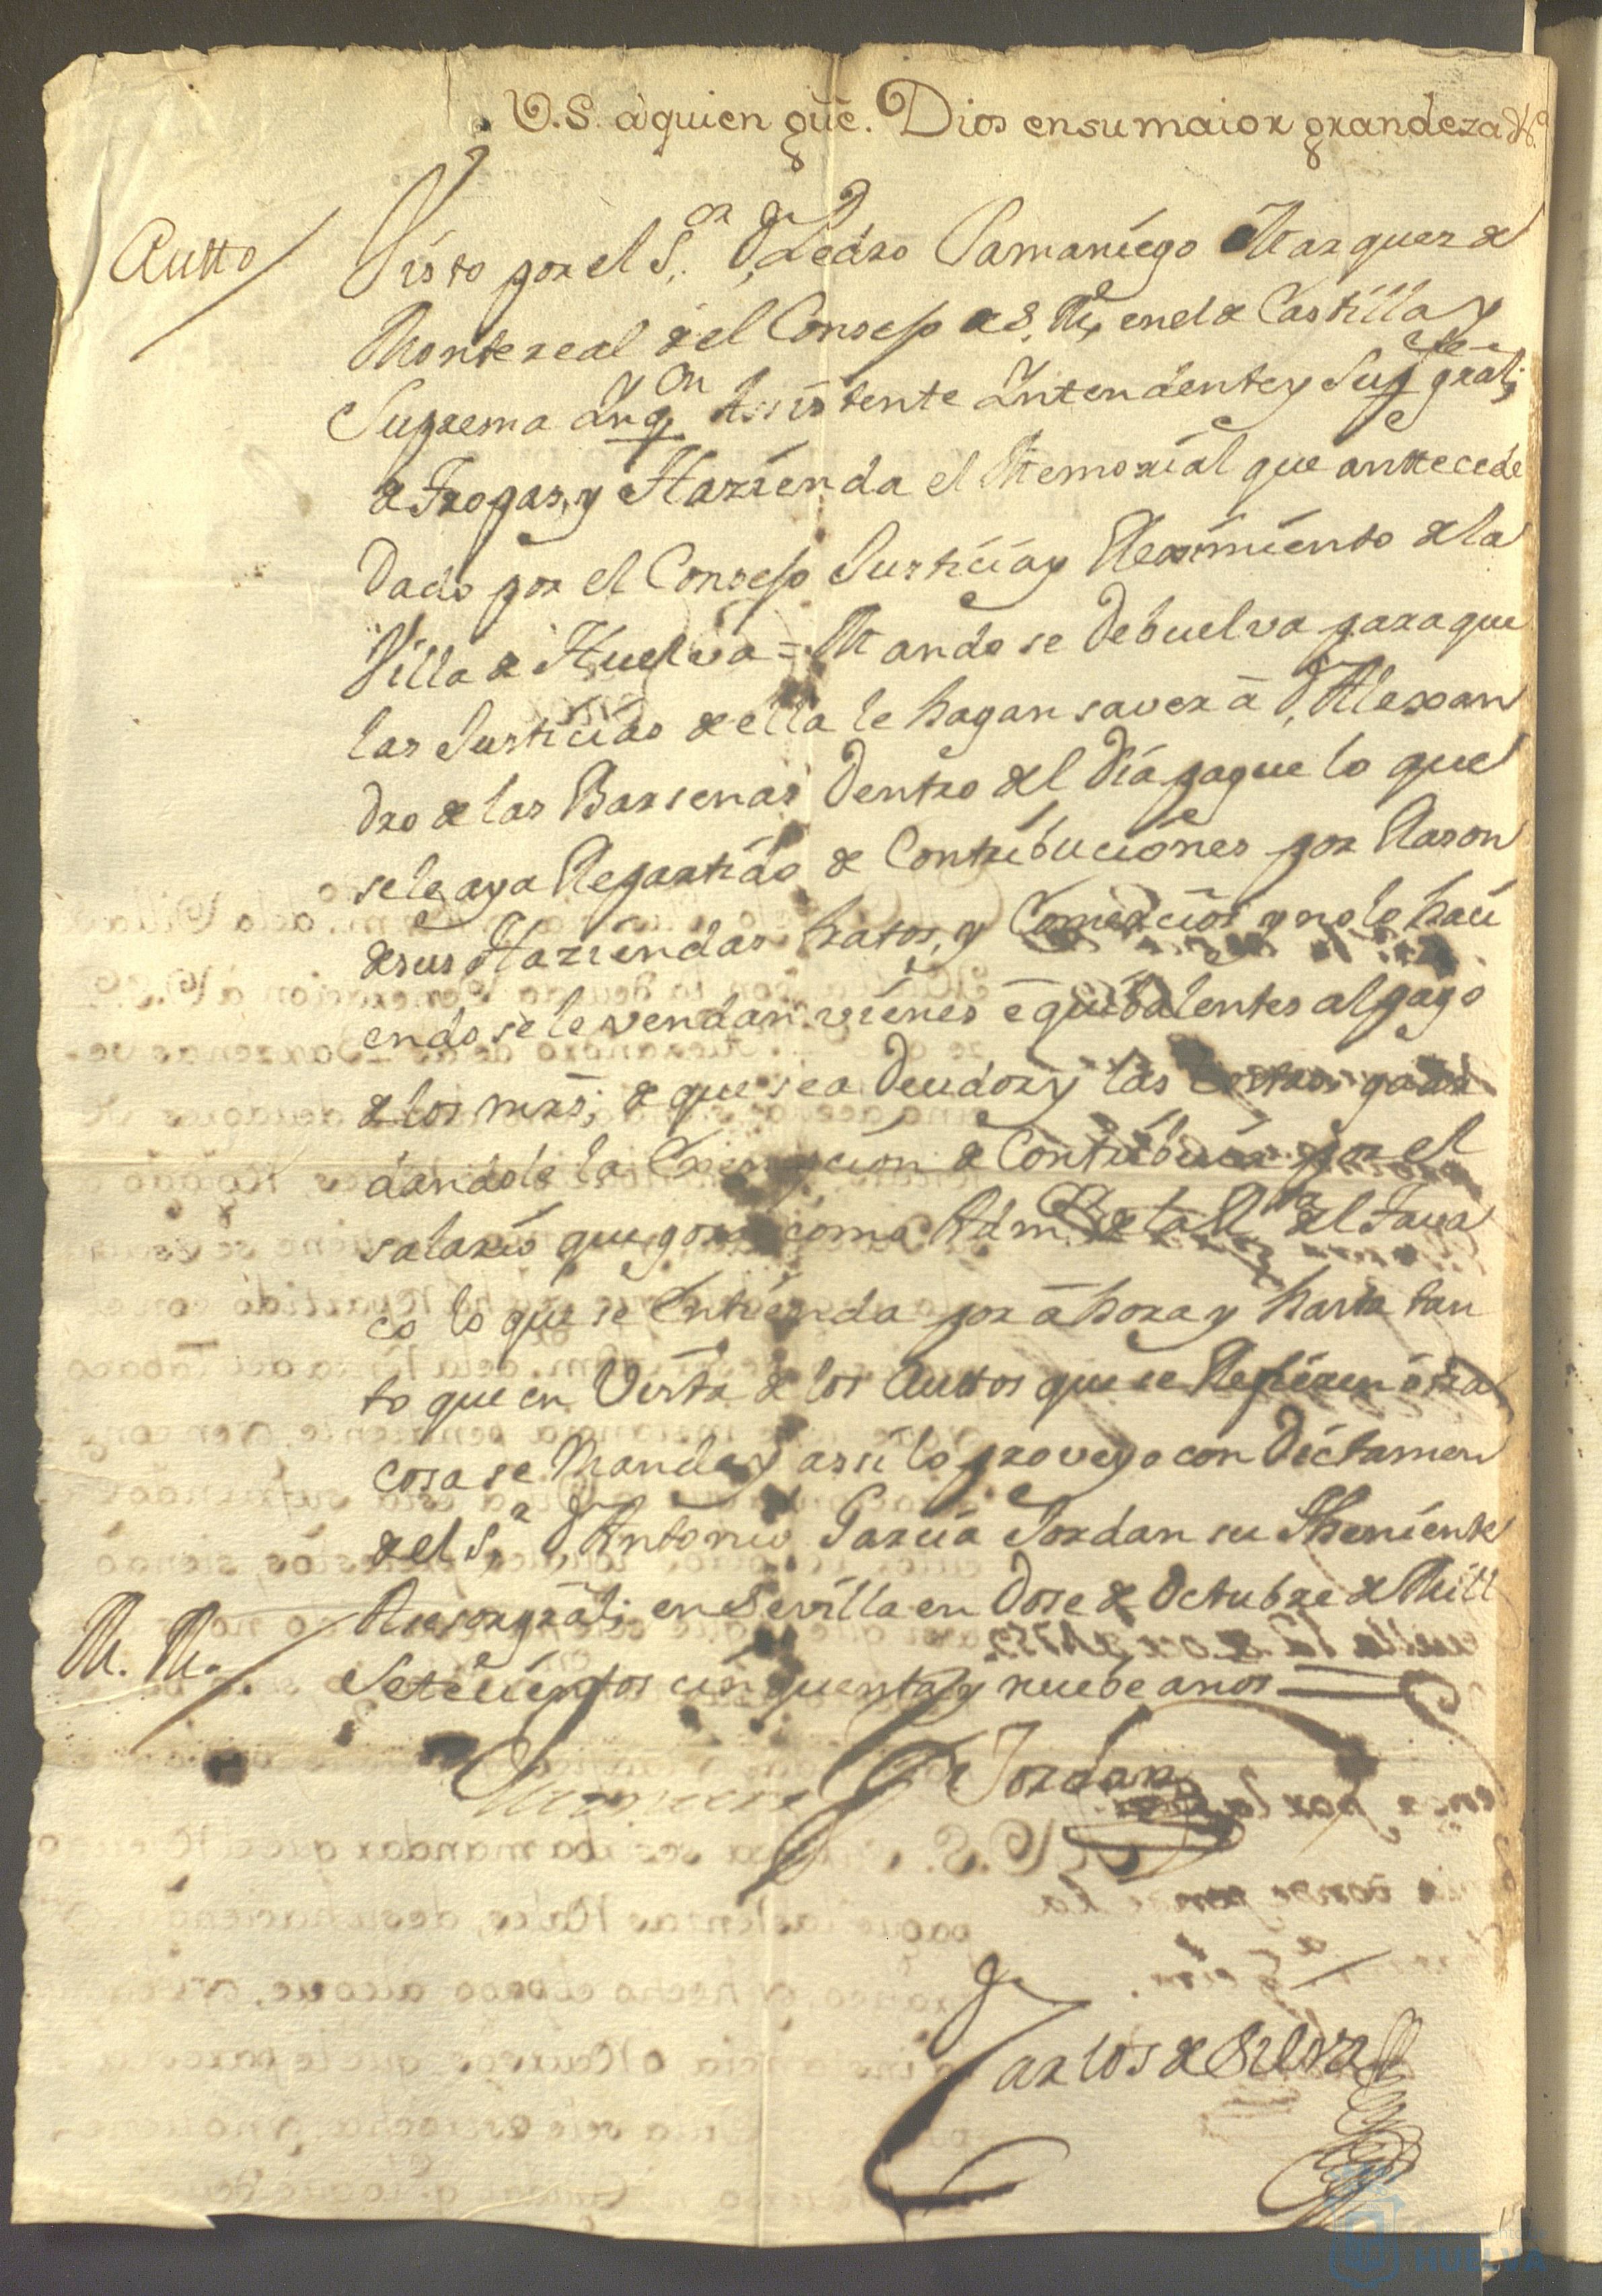 V.S. a quien gūe. Dios en su maior grandeza &ª
Autto
Visto por el S.or D.n Pedro Samaniego Marquez de
Montereal del Consejo de S. M. en el de Castilla y
Suprema Inq.on Assistente Intendente y Sup.te gral;
de Tropas, y Hazienda el Memorial que anttecede
Dado por el Consejo Justicia y Reximiento de la
Villa de Huelva = Mando se Debuelva para que
las Justicias de ella le hagan saver à D.n Alexan
dro de las Barsenas Dentro del Dia pague lo que
se le aya Repartido de Contribuciones por Rason
de sus Haziendas tratos, y Comercios y no lo haci
endo se le vendan vienes equibalentes al pago
de los mrs; de que sea Deudor y las Costas guar
dandole la Exempcion de Contribuir por el
salario que goza como Adm.or de la R.ta del Tava
co lo que se Entienda por ahora y hasta tan
to que en Vista de los Auttos que se Refieren otra
cosa se Mande y assi lo proveyo con Dictamen
del S.r D.n Antonio Garcia Jordan su Theniente
Asesor gral; en Sevilla en Dose de Octubre de Mill
M. R.
Setecientos cinquenta y nuebe anos
Jordan
D.n
Carlos de Silora
HUELVA